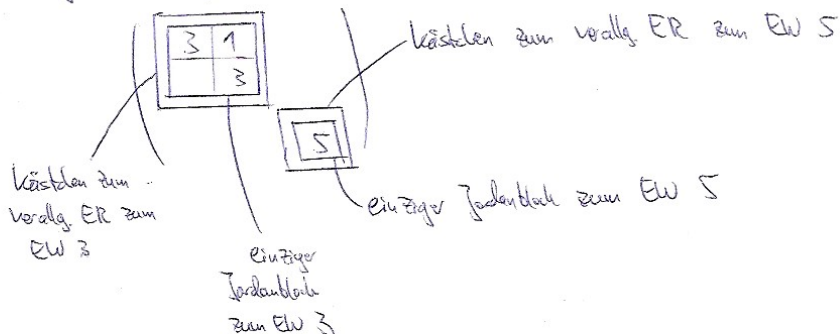 Kästchen zum verallg. ER zum EW 5
3 1
3
5
Kästchen zum
verallg. ER zum
EW 3
einziger Jordanblock zum EW 5
einziger
Jordanblock
zum EW 3